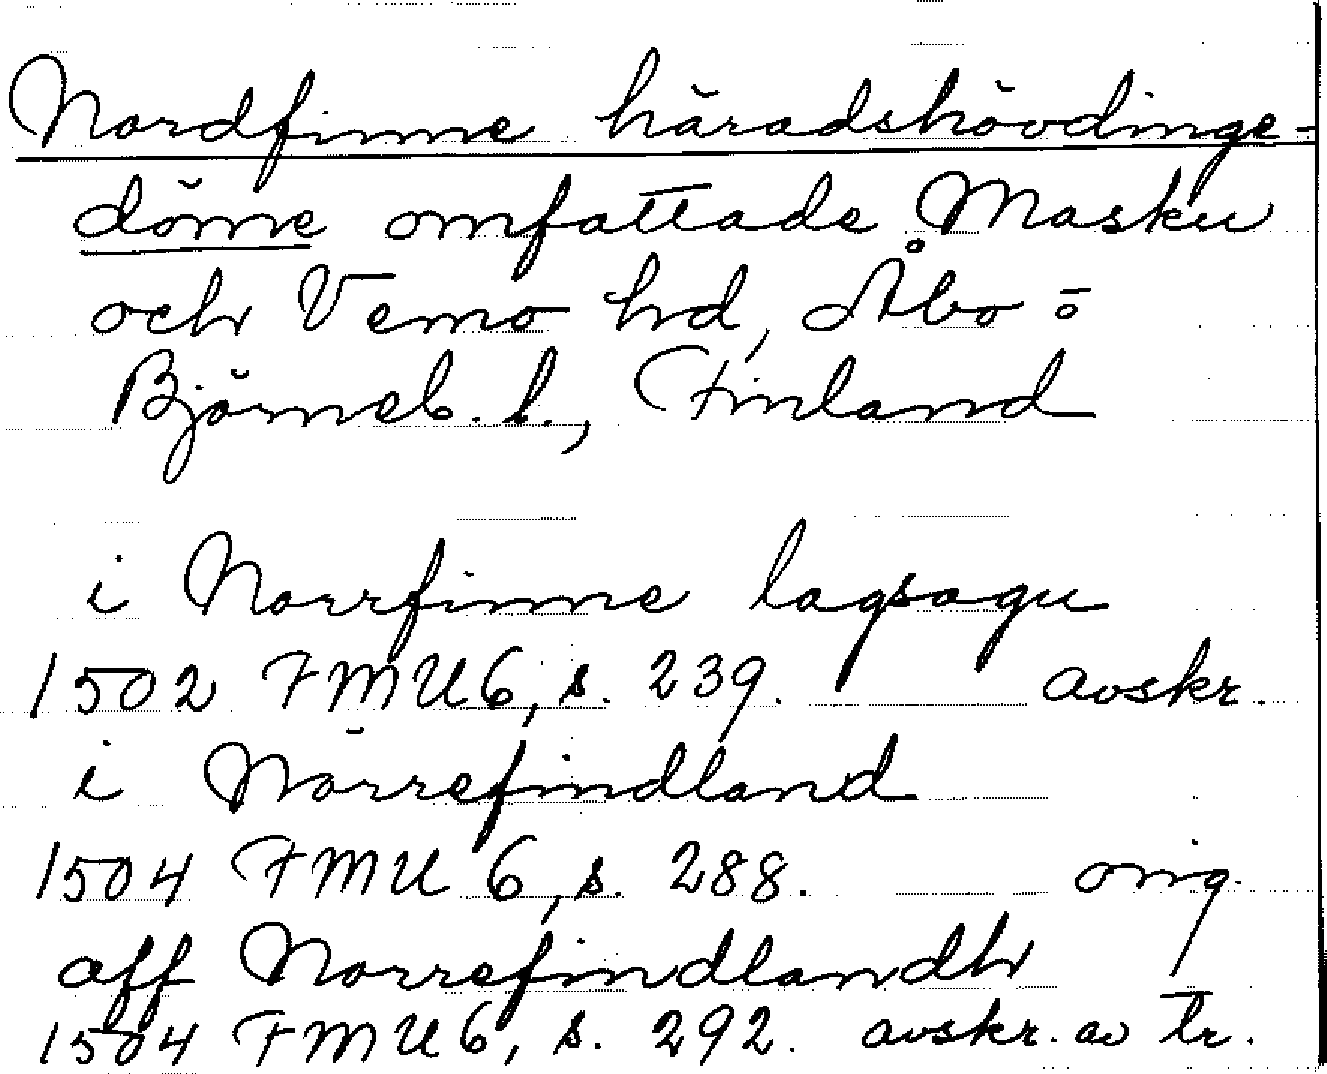 Nordfinne häradshövdinge-
döme omfattade Masku
och Vemo hd, Åbo-
Björneb. l., Finland
i Norrfinne lagsagu
1502 FMU 6, s. 239. avskr.
i Nörrefindland
1504 FMU 6, s. 288. orig.
aff Norrefindlandh
1504 FMU 6, s. 292. avskr. av tr.